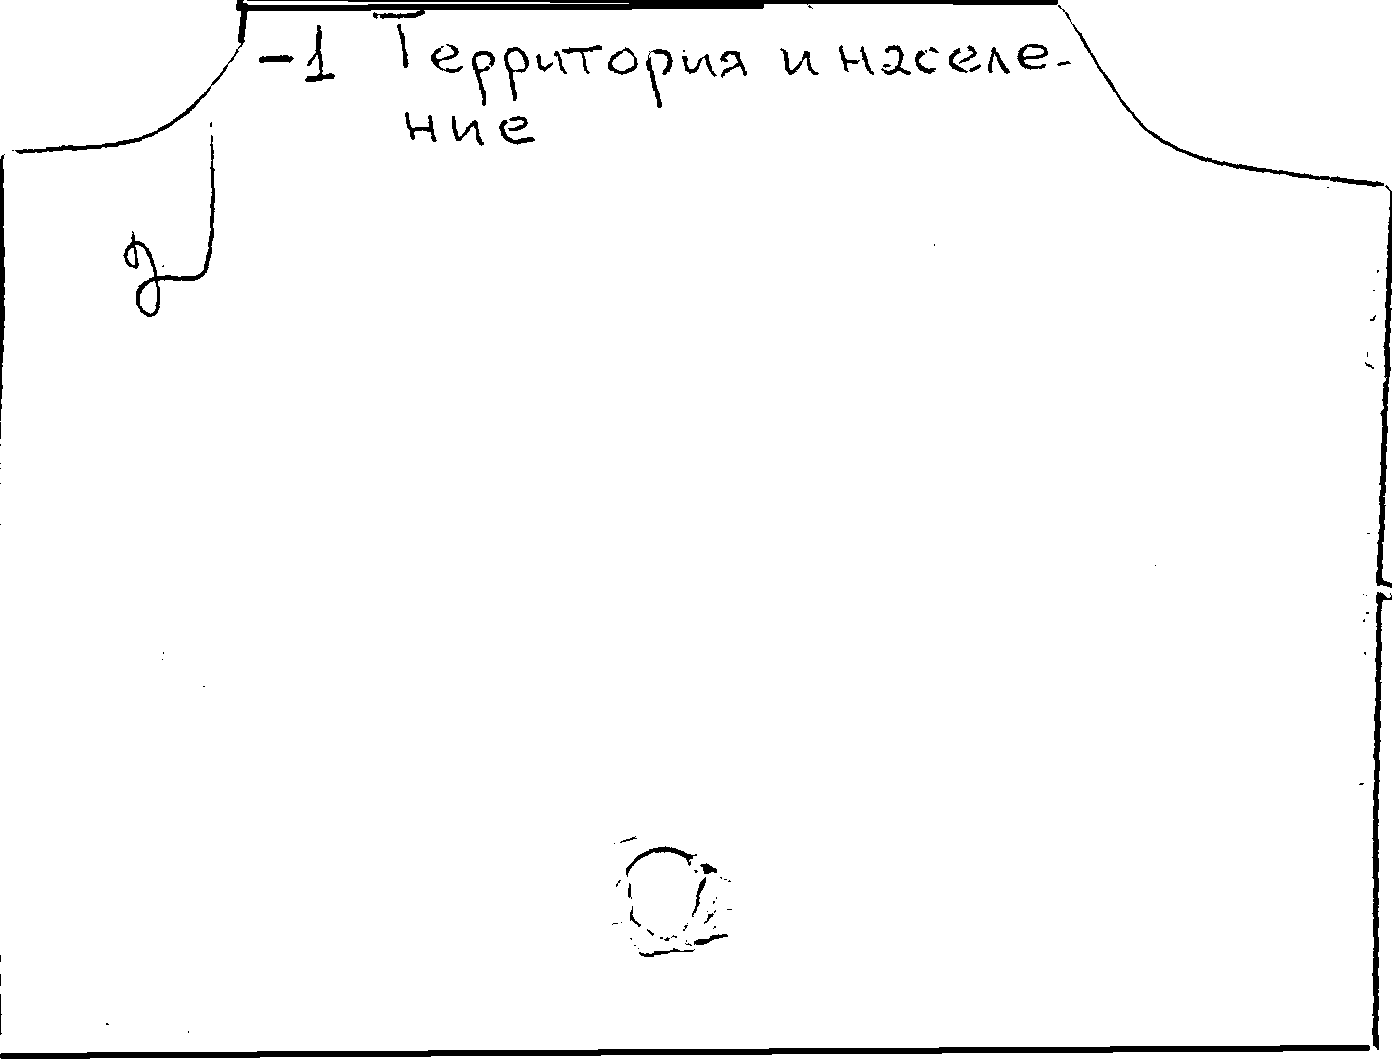 -1 Территория и населе-
ние